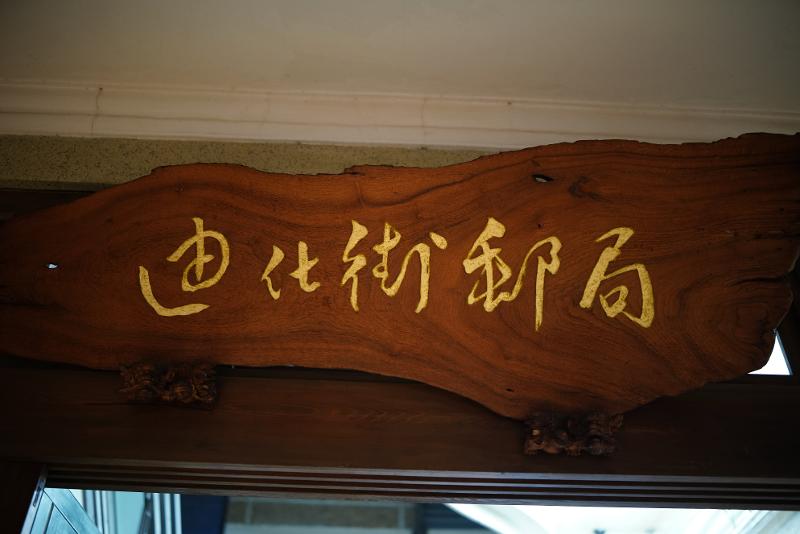 迪化街郵局